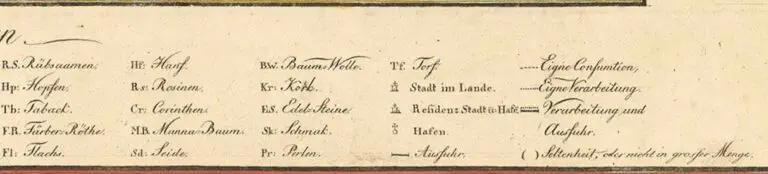 n
R.S. Rübsaamen. Hf: Hanf. B.W. Baum=Wolle. Tf. Torf. Eigne Consumtion,
Hp: Hopfen. Rs: Rosinen. Kr: Stadt im Lande. Eigne Verarbeitung.
Tb: Taback. Cr: Corinthen. E.S. Edel=Steine. Residenz Stadt u: Hafe. Verarbeitung und
F.R. Färber=Röthe. M.B. Manna=Baum. Sk: Schmak. Hafen. Ausfuhr.
Fl: Flachs. Sd: Seide. Pr: Perlen. Ausfuhr. ( ) Seltenheit, oder nicht in grosser Menge.